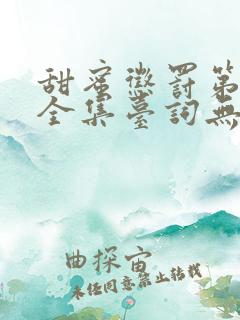 甜蜜懲罰第
全集臺詞無
曲探宙
未经同意禁止转载